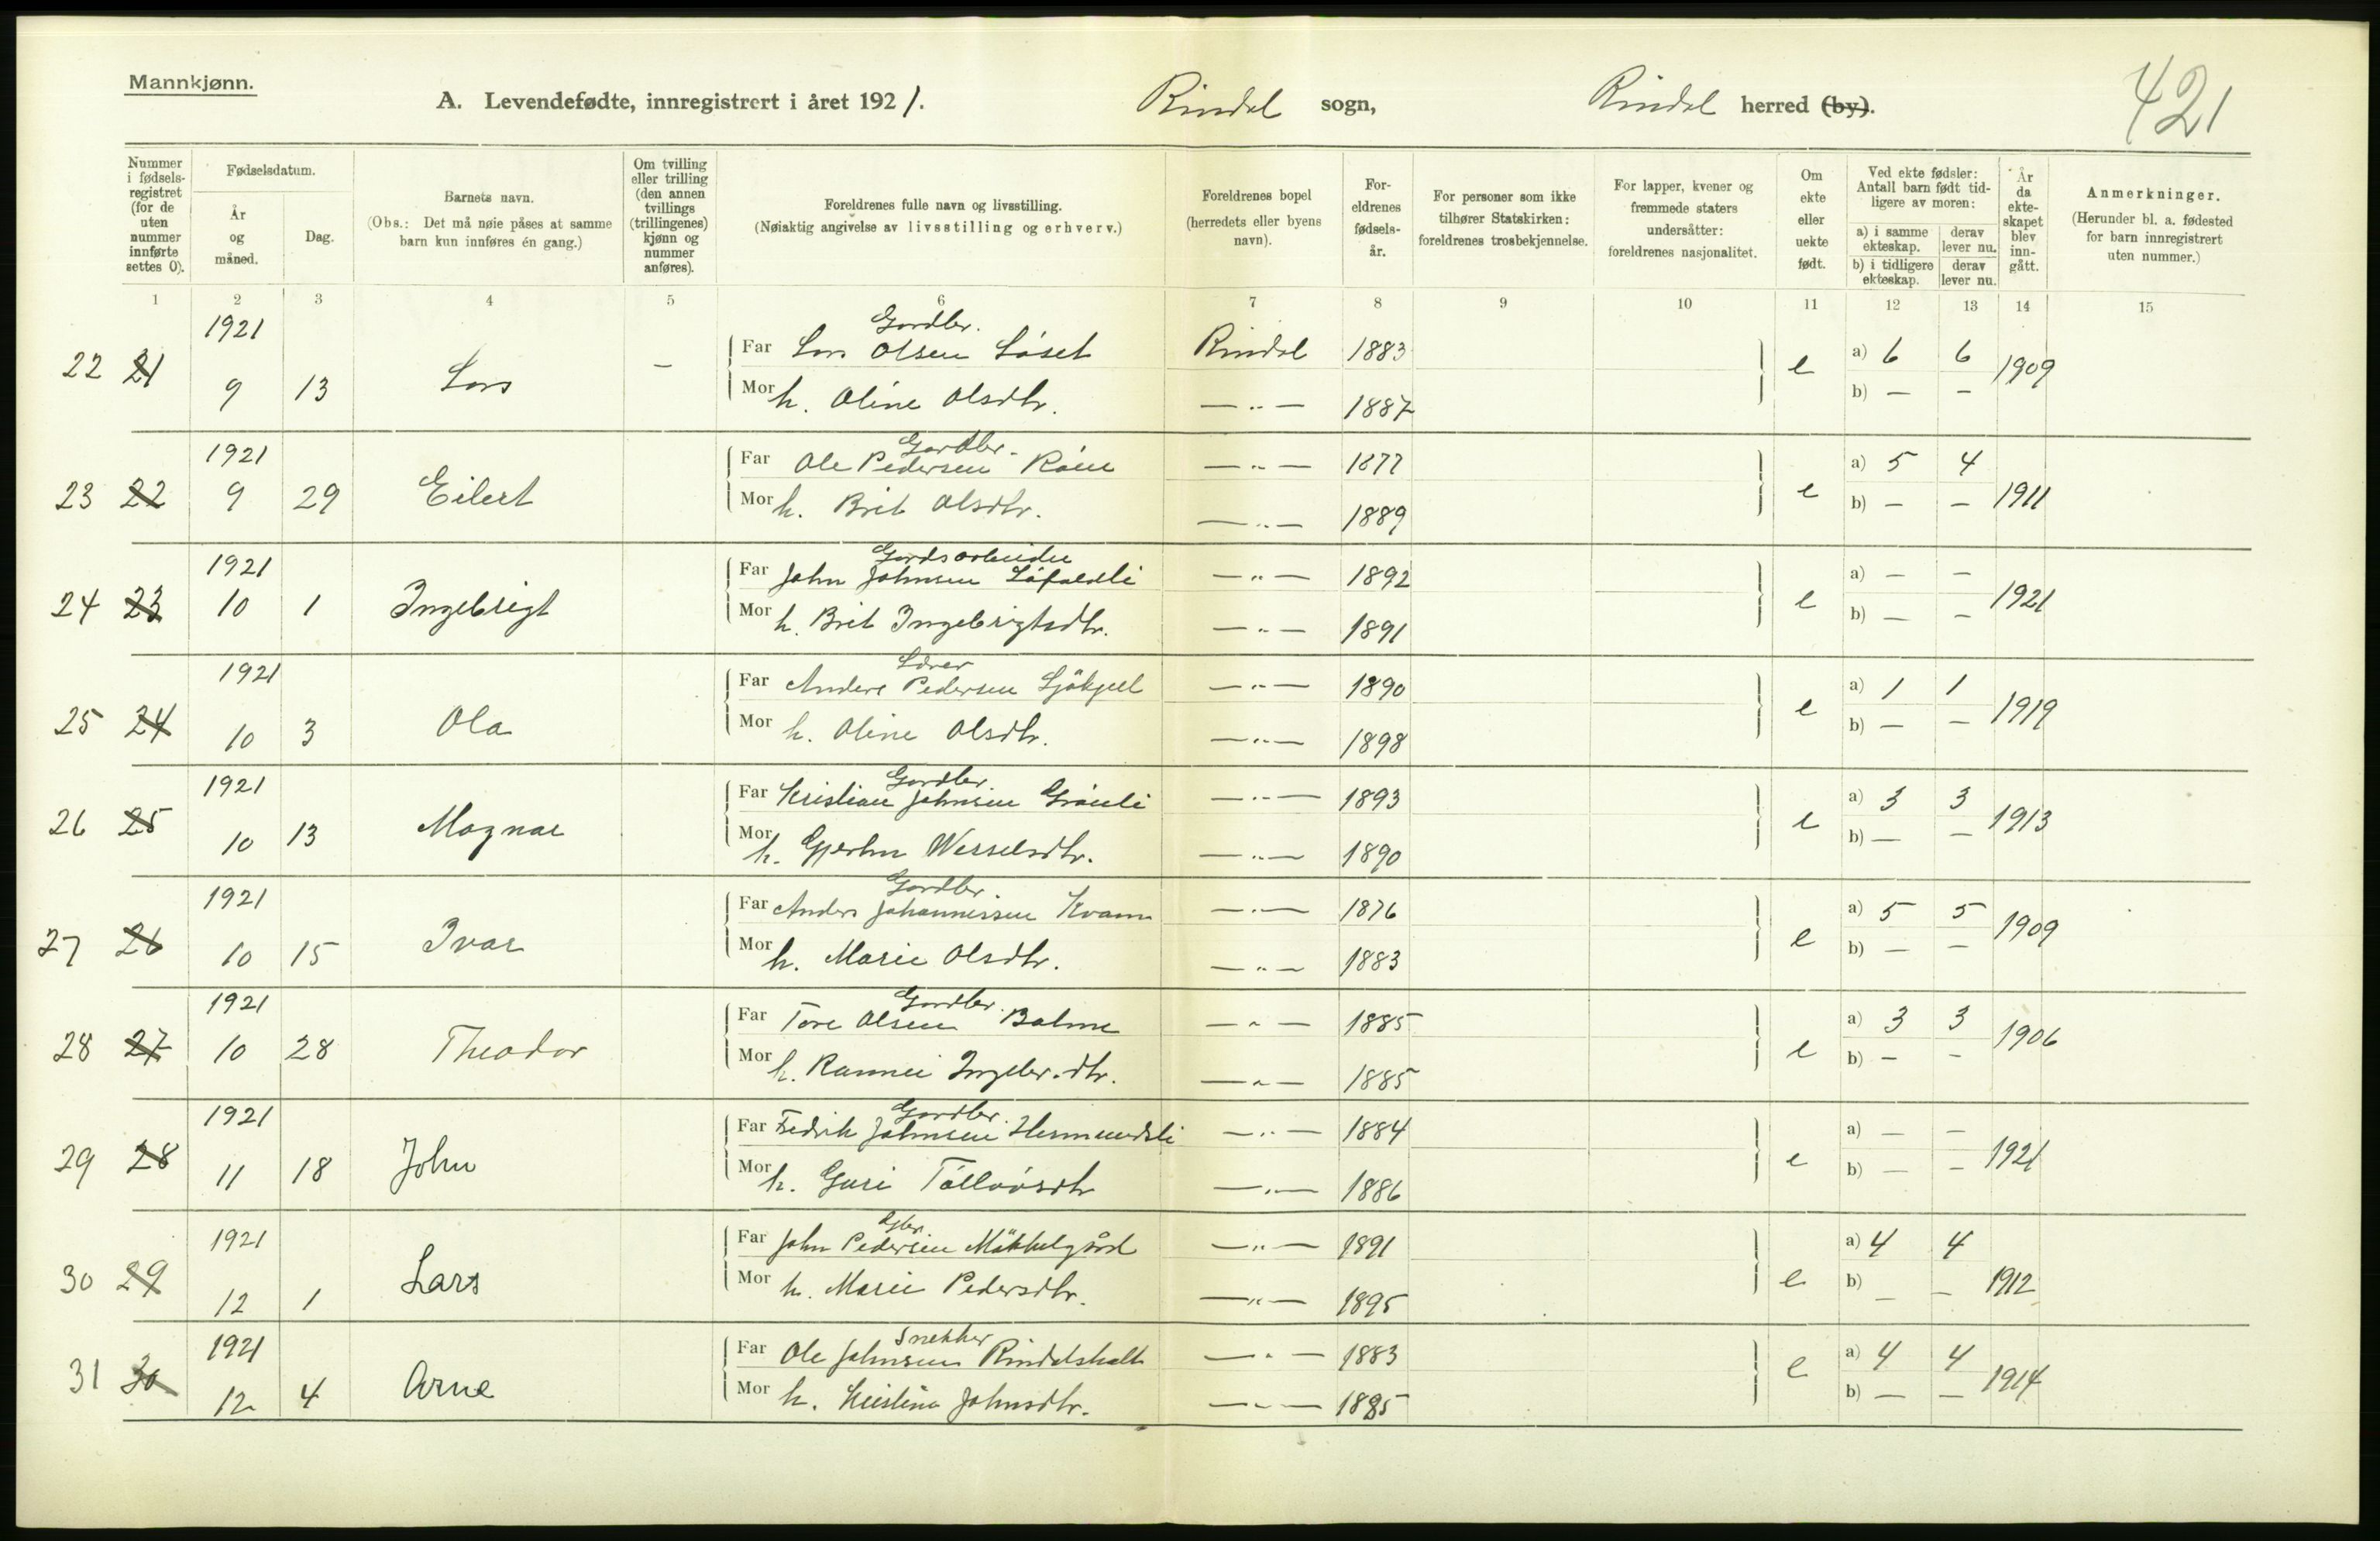 Mannkjønn.
A. Levendefødte, innregistrert i året 1921. Rindal sogn, Rindal herred (by).
421
Nummer i fødselsregistret (for de uten nummer innførte settes 0).
Fødselsdatum.
År og måned.
Dag.
Barnets navn.
(Obs.: Det må nøie påses at samme barn kun innføres én gang.)
Om tvilling eller trilling (den annen tvillings (trillingenes) kjønn og nummer anføres).
Foreldrenes fulle navn og livsstilling.
(Nøiaktig angivelse av livsstilling og erhverv.)
Foreldrenes bopel (herredets eller byens navn).
Foreldrenes fødselsår.
For personer som ikke tilhører Statskirken: foreldrenes trosbekjennelse.
For lapper, kvener og fremmede staters undersåtter: foreldrenes nasjonalitet.
Om ekte eller uekte født.
Ved ekte fødsler: Antall barn født tidligere av moren:
a) i samme ekteskap. derav lever nu.
b) i tidligere ekteskap. derav lever nu.
År da ekteskapet blev inngått.
Anmerkninger.
(Herunder bl. a. fødested for barn innregistrert uten nummer.)
1 2 3 4 5 6 7 8 9 10 11 12 13 14 15
1921 Gardbr.
22 21 9 13 Lars — Far Lars Olsen Løset Rindal 1883 e a) 6 6 1909
Mor h. Oline Olsdtr. —"— 1887 b) — —
1921 Gardbr.
23 22 9 29 Eilert Far Ole Pedersen Røen —"— 1877 e a) 5 4 1911
Mor h. Brit Olsdtr. —"— 1889 b) — —
1921 Gardsarbeider
24 23 10 1 Ingebrigt Far John Johnsen Løfaldli —"— 1892 e a) — — 1921
Mor h. Brit Ingebrigtsdtr. —"— 1891 b) — —
1921 Lærer
25 24 10 3 Ola Far Anders Pedersen —"— 1890 e a) 1 1 1919
Mor h. Oline Olsdtr. —"— 1898 b) — —
1921 Gardbr.
26 25 10 13 Magnar Far Kristian Johnsen Grønli —"— 1893 e a) 3 3 1913
Mor h. Gjertru Wesselsdtr. —"— 1890 b) — —
1921 Gardbr.
27 26 10 15 Ivar Far Anders Johannessen Kvam —"— 1876 e a) 5 5 1909
Mor h. Marie Olsdtr. —"— 1883 b) — —
1921 Gardbr.
28 27 10 28 Theodor Far Tore Olsen Bolme —"— 1885 e a) 3 3 1906
Mor h. Rannei Ingebr.dtr. —"— 1885 b) — —
1921 Gardbr.
29 28 11 18 John Far Fredrik Johnsen Hermundsli —"— 1884 e a) — — 1921
Mor h. Guri Tølløvsdtr —"— 1886 b) — —
1921 Gbr.
30 29 12 1 Lars Far John Pedersen Møkkelgård —"— 1891 e a) 4 4 1912
Mor h. Marie Pedersdtr. —"— 1895 b) — —
1921 Snekker
31 30 12 4 Arne Far Ole Johnsen Rindalsholt —"— 1883 e a) 4 4 1914
Mor h. Kristina Johnsdtr. —"— 1885 b) — —